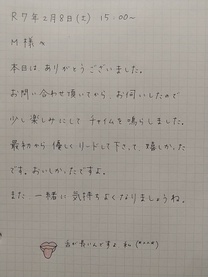 R7年2月8日(土) 15:00~
M様へ
本日は ありがとうございました。
お問い合わせ頂いてから お伺いしたので
少し楽しみにして チャイムを鳴らしました。
最初から 優しくリードして下さって 嬉しかった
です。おいしかったですよ。
また 一緒に 気持ちよくなりましょうね。
舌が長いんですよ 私 (*^^*)